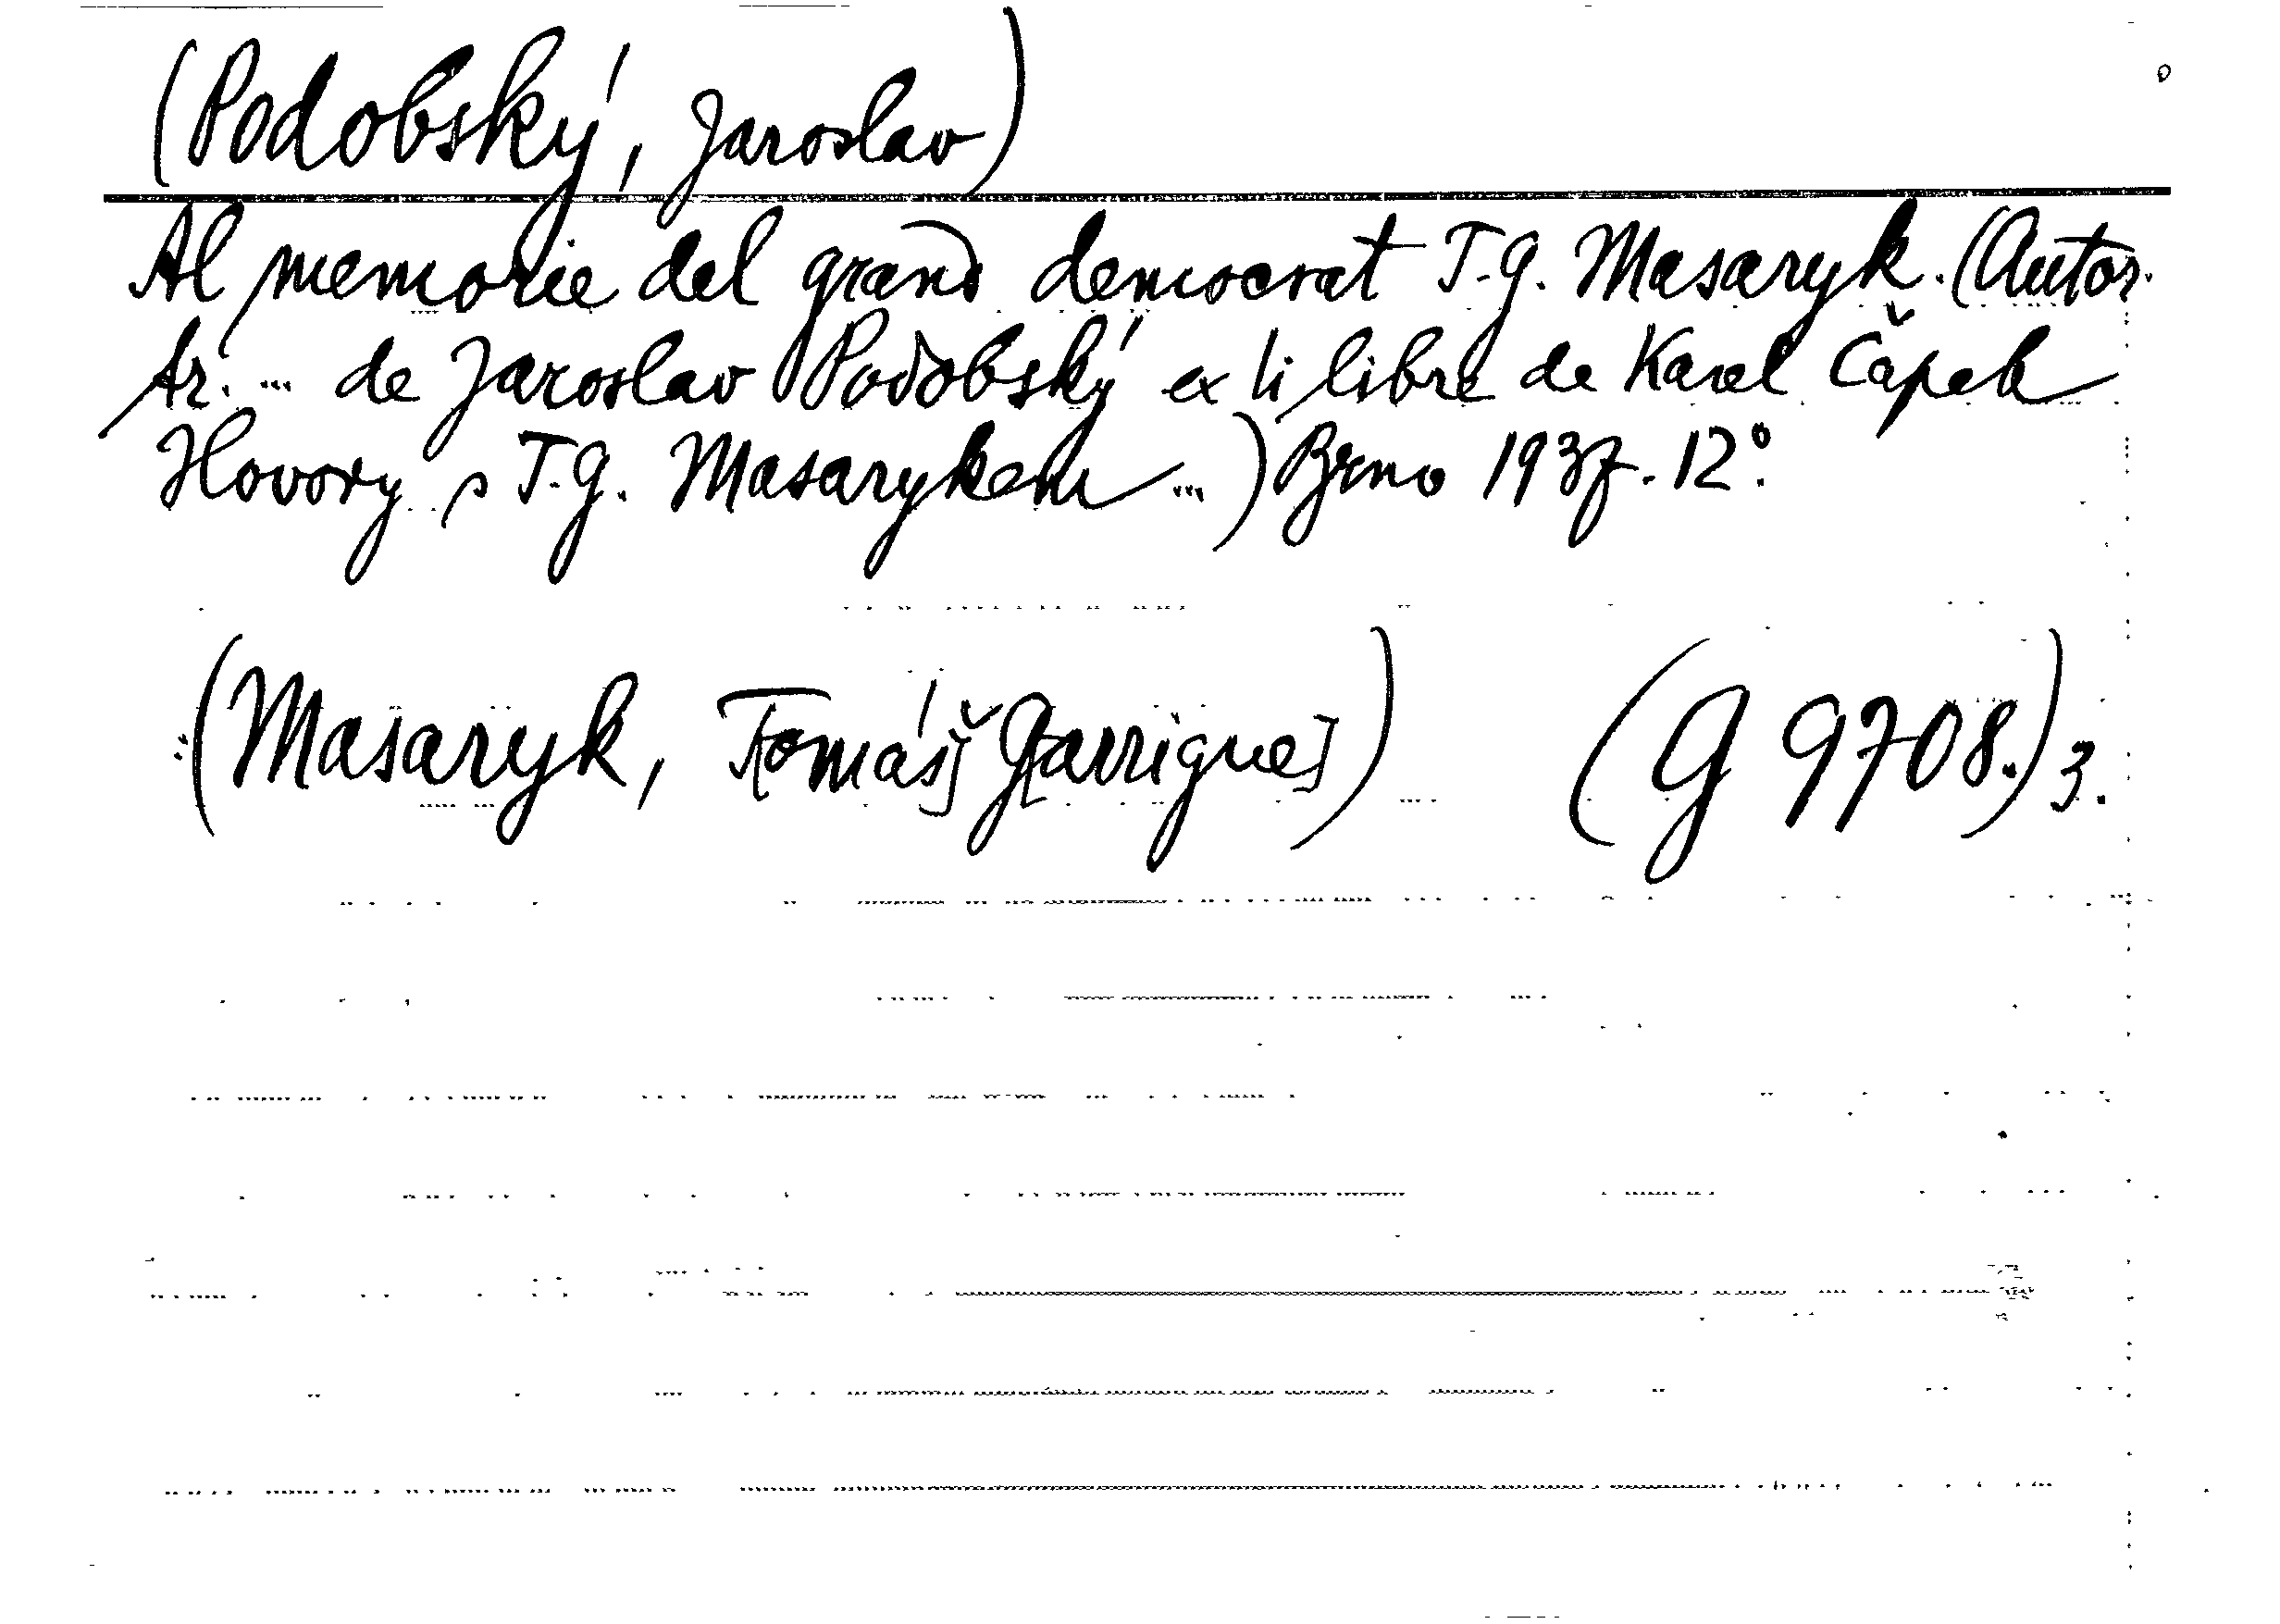 (Podobský, Jaroslav)
Al memorie del grand democrat T. G. Masaryk. (Autor.
tr. ... de Jaroslav Podobský ex li libre de Karel Čapek
Hovory s T. G. Masarykem ...) Brno 1937. 12°.
(Masaryk, T[omáš] G[arrigue]) (G 9708.) 3.